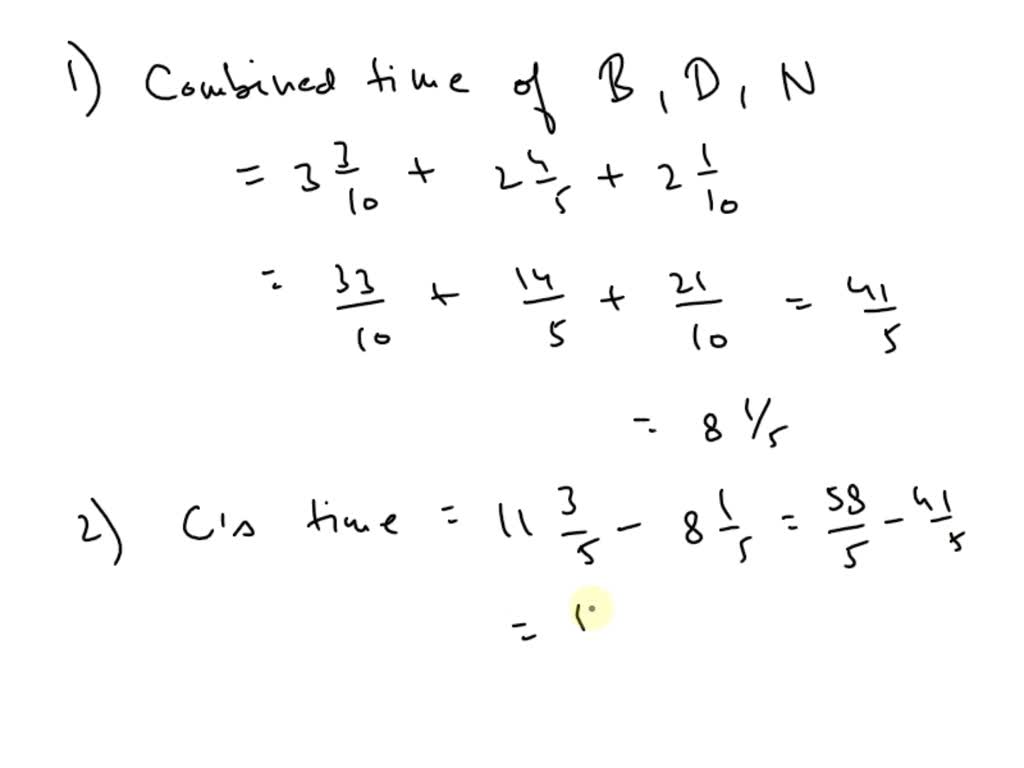 1) Combined time of B, D, N
= 3 3/10 + 2 4/5 + 2 1/10
= 33/10 + 14/5 + 21/10 = 41/5
= 8 1/5
2) C's time = 11 3/5 - 8 1/5 = 58/5 - 41/5
=